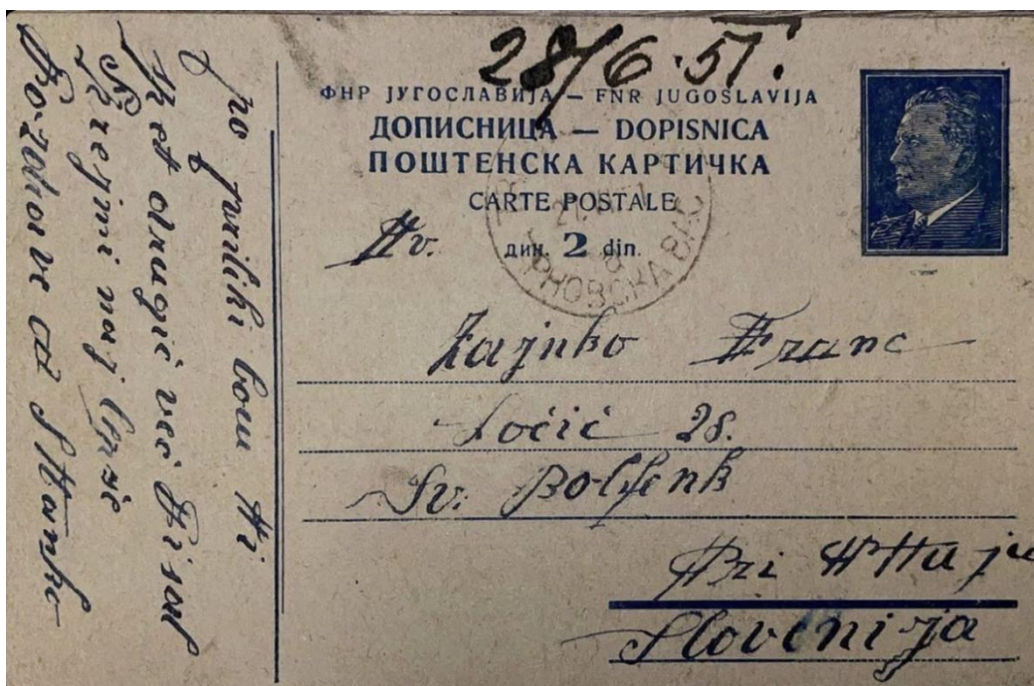 28/6.51.
ФНР ЈУГОСЛАВИЈА — FNR JUGOSLAVIJA
ДОПИСНИЦА — DOPISNICA
ПОШТЕНСКА КАРТИЧКА
CARTE POSTALE
дин. 2 din.
Franc
Ločič 28.
Sv. Bolfenk
Pri Ptuju
Slovenija
po priliki bom ti
kej drugič več pisal
Sprejmi naj lepše
Pozdrave od Stanko